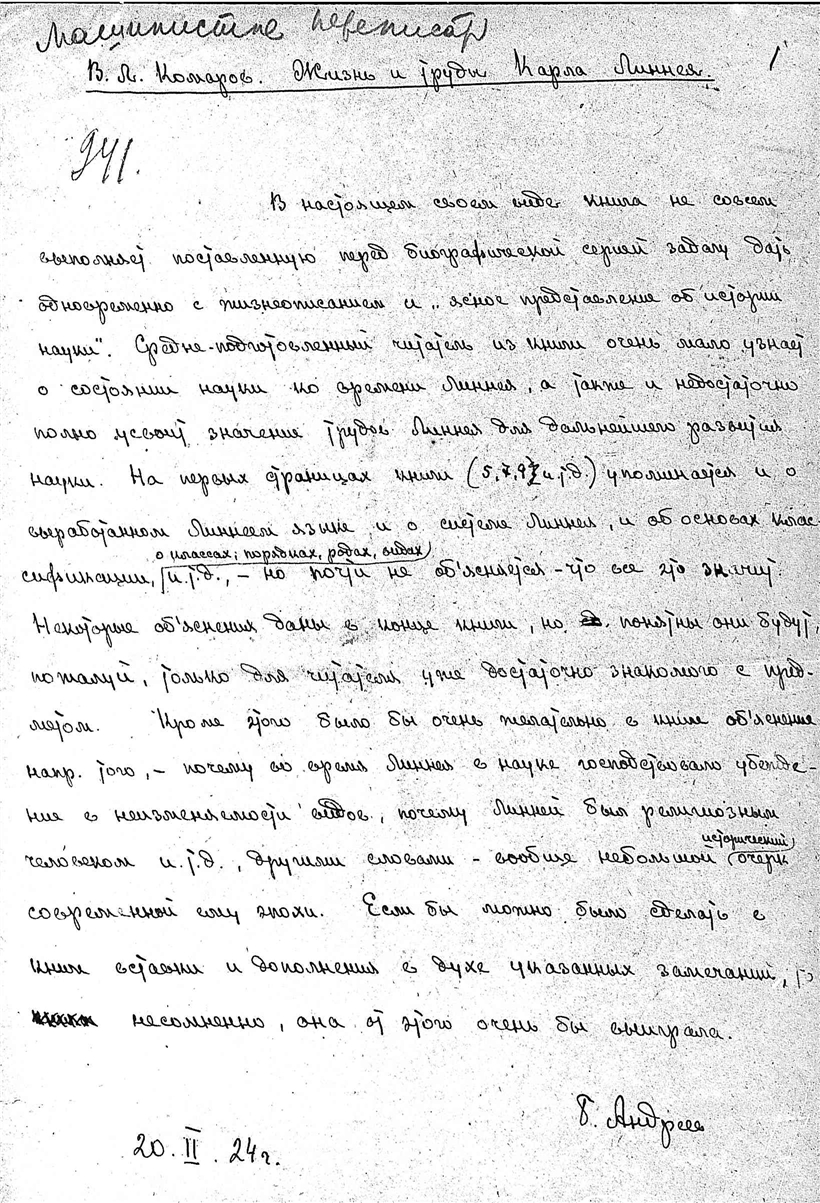 Машинистке переписать
1
В. Л. Комаров. Жизнь и труды Карла Линнея.
941.
В настоящем своем виде книга не совсем
выполняет поставленную перед биографической серией задачу дать
одновременно с жизнеописанием и „ясное представление об истории
науки". Средне-подготовленный читатель из книги очень мало узнает
о состоянии науки ко времени Линнея, а также и недостаточно
полно усвоит значение трудов Линнея для дальнейшего развития
науки. На первых страницах книги (5, 7, 9 и т.д.) упоминается и о
выработанном Линнеем языке и о системе Линнея, и об основах клас-
о классах, порядках, родах, видах
сификации, и.т.д., – но почти не об'ясняется – что все это значит.
Некоторые об'яснения даны в конце книги, но понятны они будут,
пожалуй, только для читателя уже достаточно знакомого с пред-
метом. Кроме этого было бы очень желательно в книге об'яснение
напр. того, – почему во время Линнея в науке господствовало убежде-
ние в неизменяемости видов, почему Линней был религиозным
исторический
человеком и.т.д., другими словами – вообще небольшой очерк
современной ему эпохи. Если бы можно было сделать в
книге вставки и дополнения в духе указанных замечаний, то
несомненно, она от этого очень бы выиграла.
Андреев
20. II. 24 г.